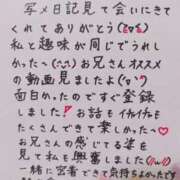 写メ日記見て会いにきて
くれてありがとう(ᵔᴗᵔ)
私と趣味が同じでうれし
かった~(^-^) お兄さんオススメ
の動画見ましたよ(^-^)
面白かったのですぐ登録
しました! お話もイチャイチャも
たくさんできて楽しかった~♡
お兄さんの感じてる姿を
見て私も興奮しました
一緒に密着できて気持ちよかったです